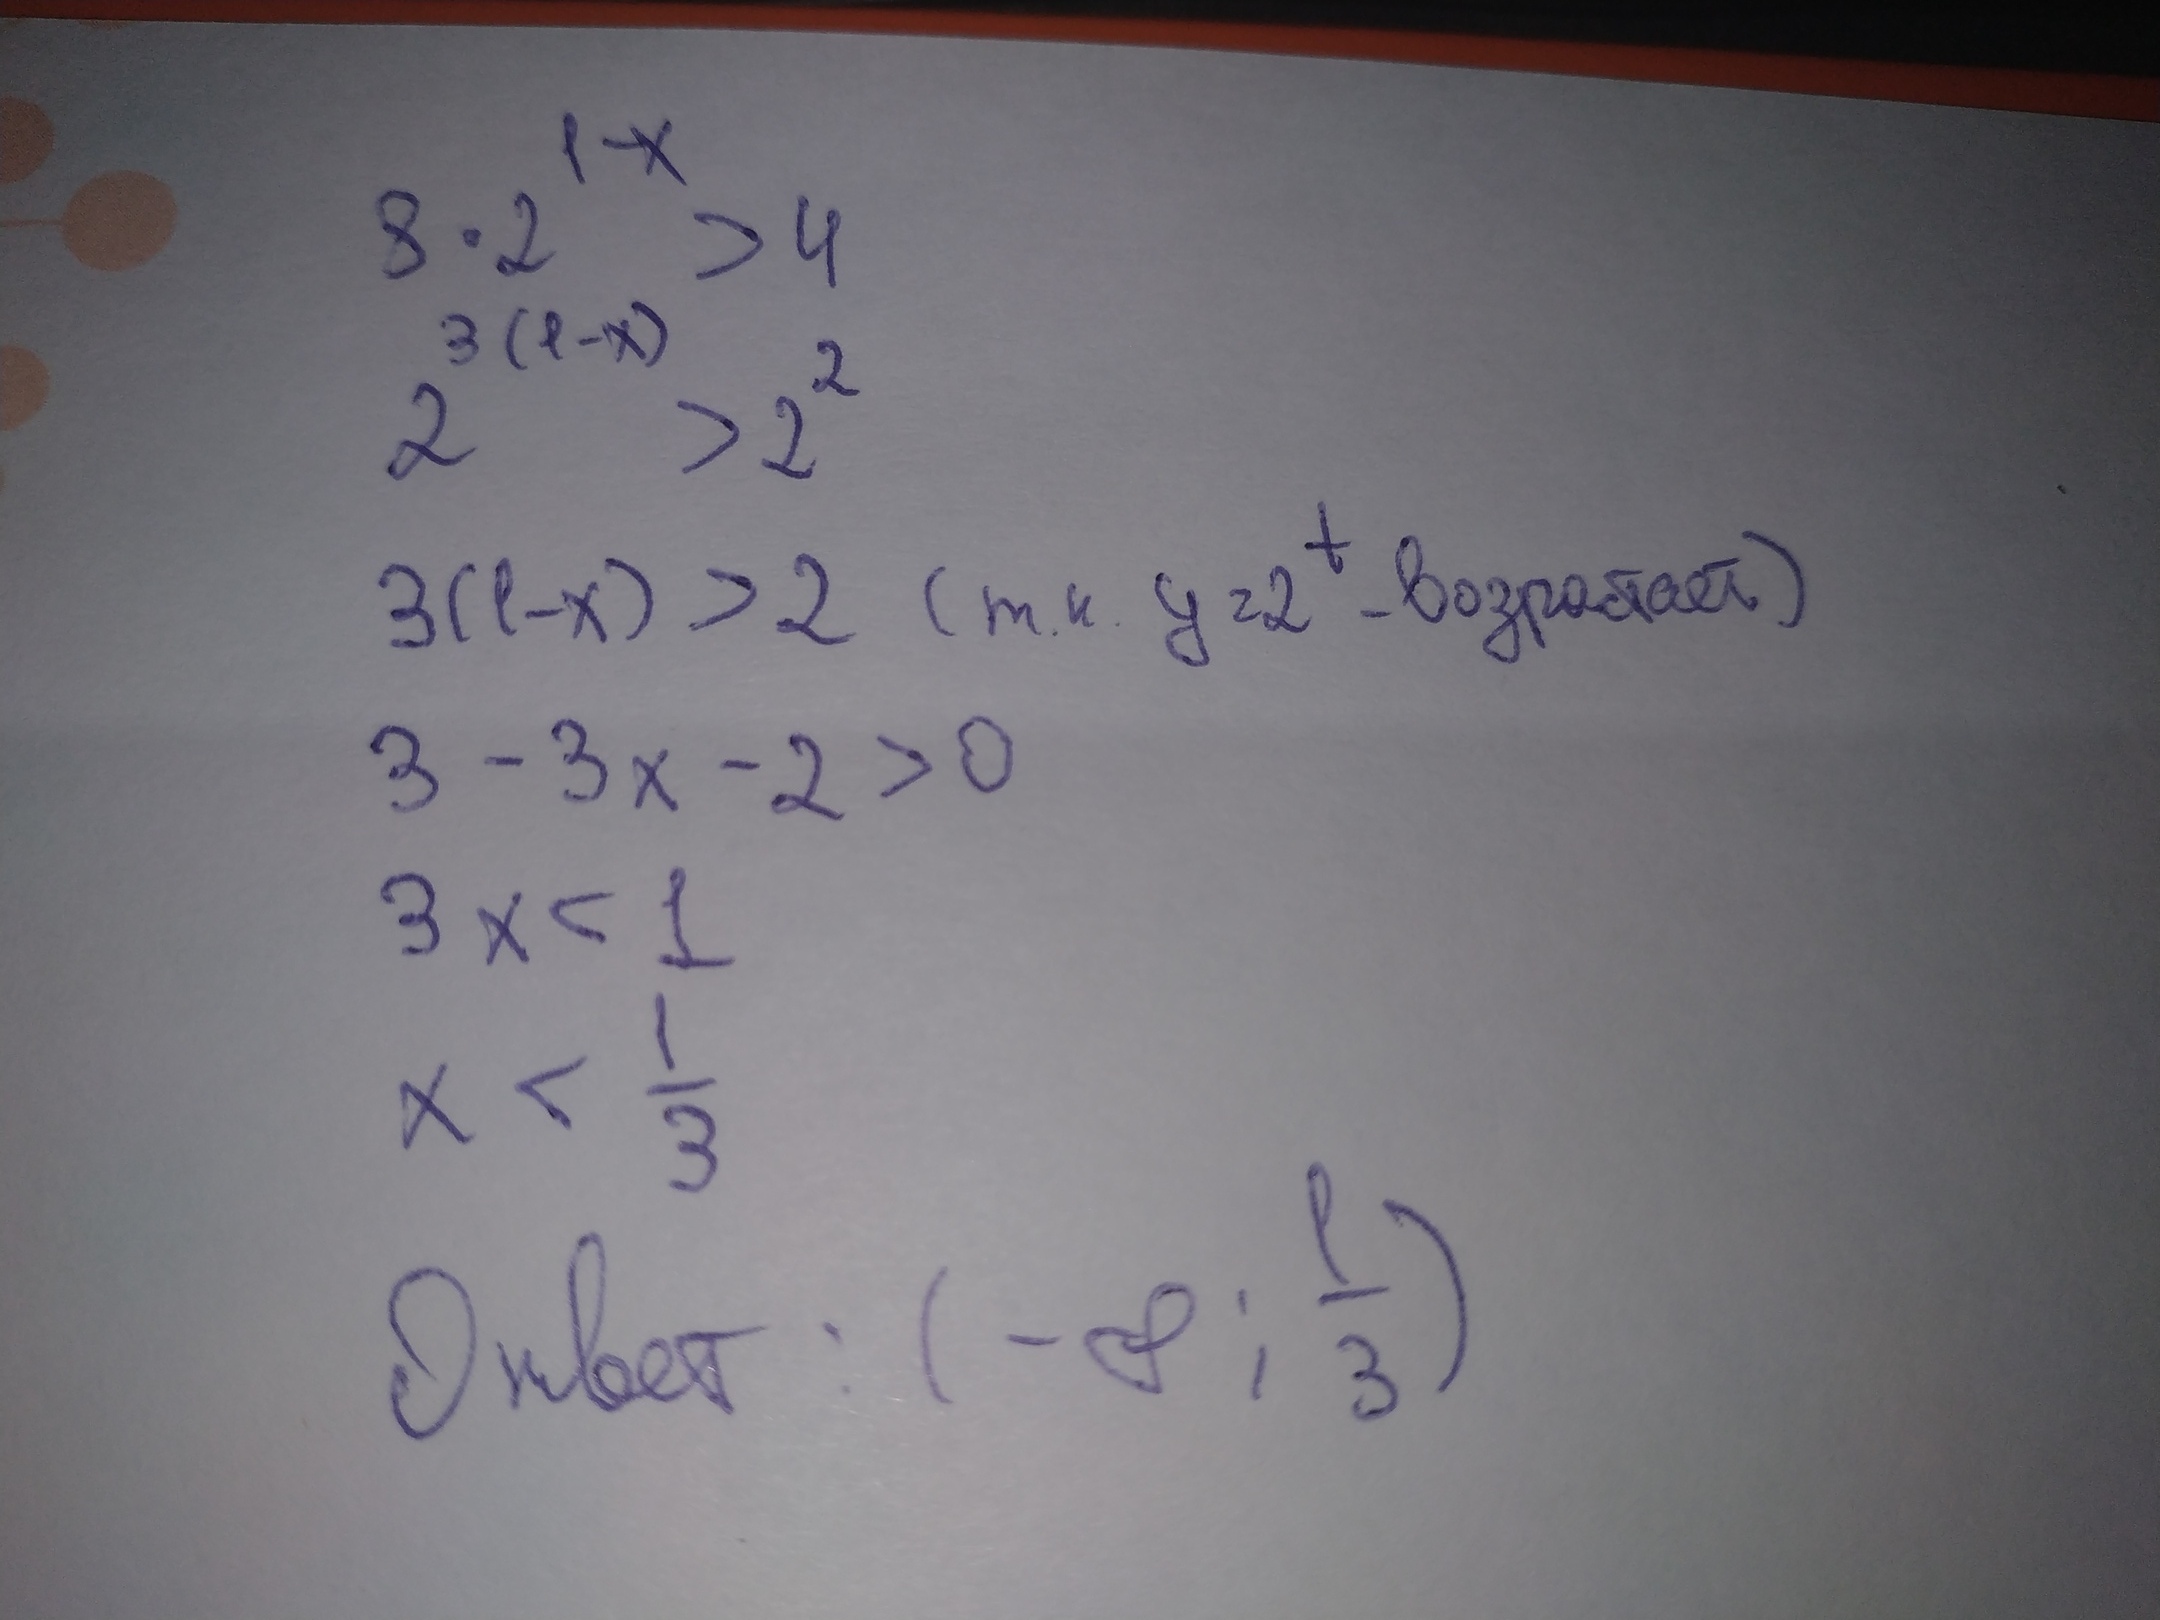 8 · 2^{1-x} > 4
2^{3(1-x)} > 2^2
3(1-x) > 2 (т.к. y=2^t - возрастает)
3 - 3x - 2 > 0
3x < 1
x < 1/3
Ответ: (-∞; 1/3)